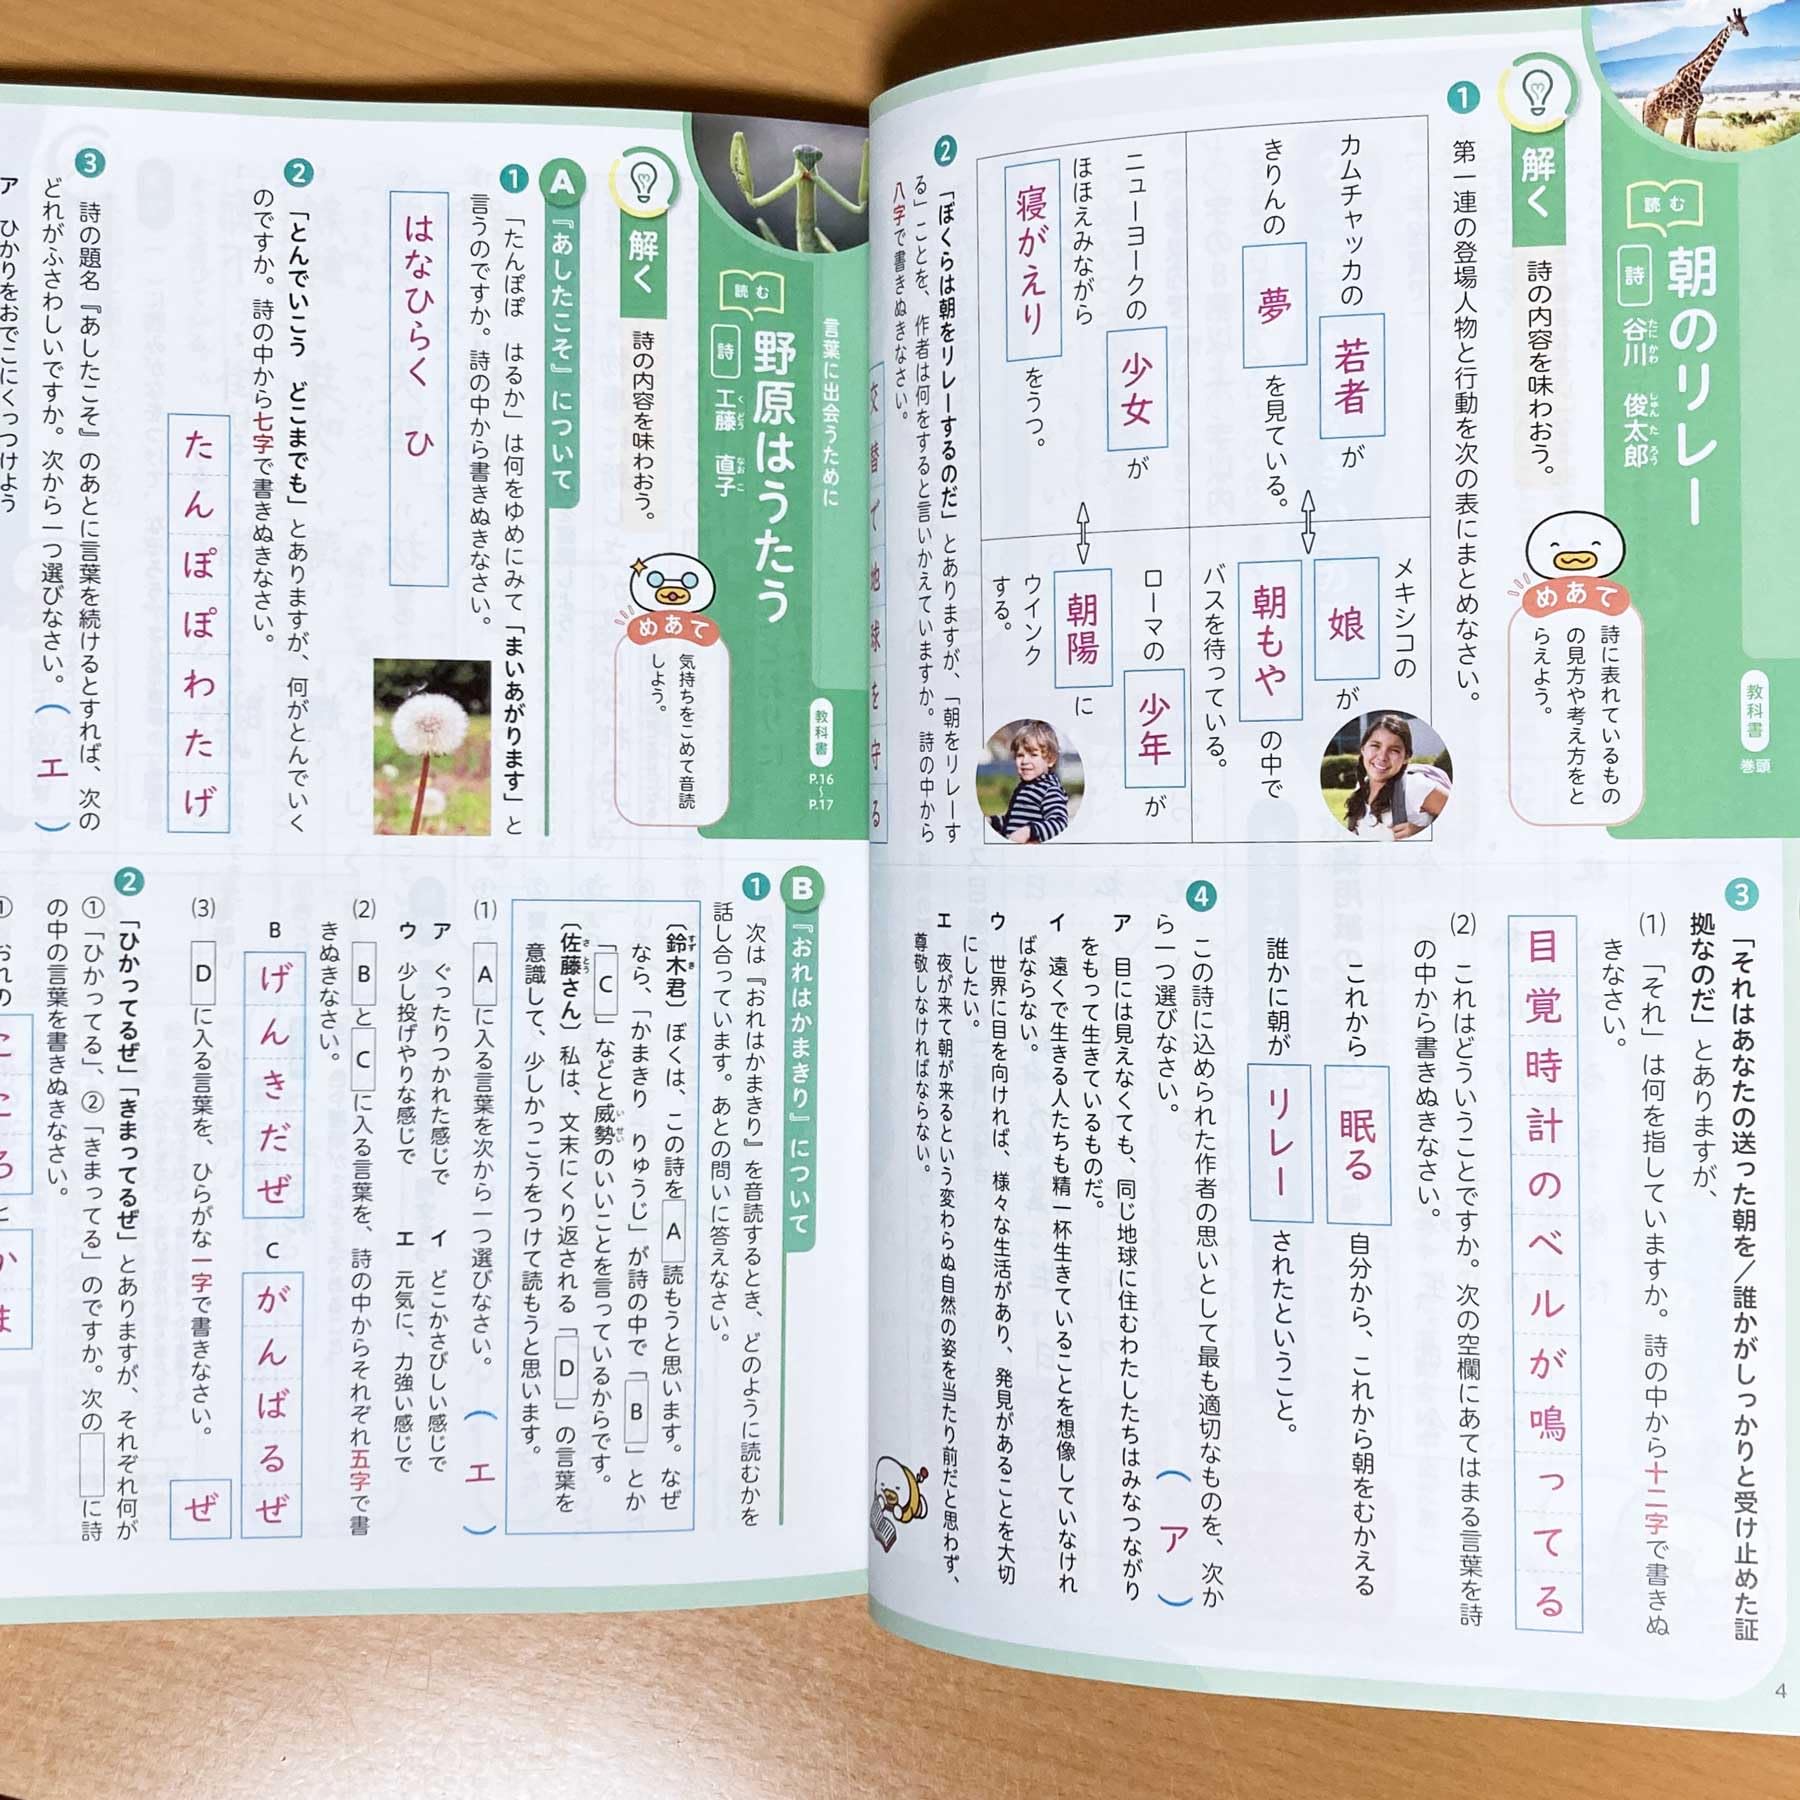 読む
朝のリレー
詩
谷川 俊太郎
たにかわ しゅんたろう
教科書
巻頭
解く
詩の内容を味わおう。
めあて
詩に表れているもの
の見方や考え方をと
らえよう。
1 第一連の登場人物と行動を次の表にまとめなさい。
カムチャッカの 若者 が
きりんの 夢 を見ている。
メキシコの 娘 が
朝もや の中で
バスを待っている。
ニューヨークの 少女 が
ほほえみながら
寝がえり をうつ。
ローマの 少年 が
朝陽 に
ウインク
する。
2 「ぼくらは朝をリレーするのだ」とありますが、「朝をリレーす
る」ことを、作者は何をすると言いかえていますか。詩の中から
八字で書きぬきなさい。
交替で地球を守る
3 「それはあなたの送った朝を／誰かがしっかりと受け止めた証
拠なのだ」とありますが、
(1) 「それ」は何を指していますか。詩の中から十二字で書きぬ
きなさい。
目覚時計のベルが鳴ってる
(2) これはどういうことですか。次の空欄にあてはまる言葉を詩
の中から書きぬきなさい。
これから 眠る 自分から、これから朝をむかえる
誰かに朝が リレー されたということ。
4 この詩に込められた作者の思いとして最も適切なものを、次か
ら一つ選びなさい。
( ア )
ア 目には見えなくても、同じ地球に住むわたしたちはみなつながり
をもって生きているものだ。
イ 遠くで生きる人たちも精一杯生きていることを想像していなけれ
ばならない。
ウ 世界に目を向ければ、様々な生活があり、発見があることを大切
にしたい。
エ 夜が来て朝が来るという変わらぬ自然の姿を当たり前だと思わず、
尊敬しなければならない。
4
言葉に出会うために
読む
野原はうたう
詩
工藤 直子
くどう なおこ
教科書
P.16〜P.17
解く
詩の内容を味わおう。
めあて
気持ちをこめて音読
しよう。
A 『あしたこそ』について
1 「たんぽぽ はるか」は何をゆめにみて「まいあがります」と
言うのですか。詩の中から書きぬきなさい。
はなひらく ひ
2 「とんでいこう どこまでも」とありますが、何がとんでいく
のですか。詩の中から七字で書きぬきなさい。
たんぽぽわたげ
3 詩の題名『あしたこそ』のあとに言葉を続けるとすれば、次の
どれがふさわしいですか。次から一つ選びなさい。
( エ )
ア ひかりをおでこにくっつけよう
B 『おれはかまきり』について
1 次は『おれはかまきり』を音読するとき、どのように読むかを
話し合っています。あとの問いに答えなさい。
〔鈴木君〕ぼくは、この詩を A 読もうと思います。なぜ
すずき
なら、「かまきり りゅうじ」が詩の中で「 B 」とか
「 C 」などと威勢のいいことを言っているからです。
いせい
〔佐藤さん〕私は、文末にくり返される「 D 」の言葉を
さとう
意識して、少しかっこうをつけて読もうと思います。
(1) A に入る言葉を次から一つ選びなさい。
( エ )
ア ぐったりつかれた感じで イ どこかさびしい感じで
ウ 少し投げやりな感じで エ 元気に、力強い感じで
(2) B と C に入る言葉を、詩の中からそれぞれ五字で書
きぬきなさい。
B げんきだぜ C がんばるぜ
(3) D に入る言葉を、ひらがな一字で書きなさい。
ぜ
2 「ひかってるぜ」「きまってるぜ」とありますが、それぞれ何が
①「ひかってる」、②「きまってる」のですか。次の に詩
の中の言葉を書きぬきなさい。
① おれの